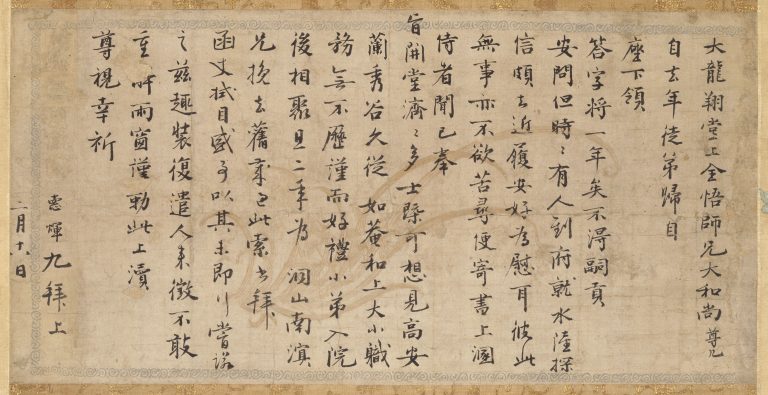 大龍翔堂上全悟師兄大和尚尊兄
自去年徒弟歸自
座下領
答字將一年矣不得嗣貢
安問但時々有人到府就水陸探
信頗去近履安好為慰耳彼此
無事亦不欲苦尋便寄書上溷
侍者聞已奉
旨開堂濟々多士槩可想見高安
蘭秀谷久從如菴和上大小職
務無不歷謹而好禮小弟入院
後相聚且二年為洞山南濵
兄挽去舊歲已此索書拜
函丈拭目盛事以其未即行嘗諾
之茲趣裝復遣人來徵不敢
重吁雨窗謹勒此上瀆
尊視幸祈
悳煇九拜上
二月十八日